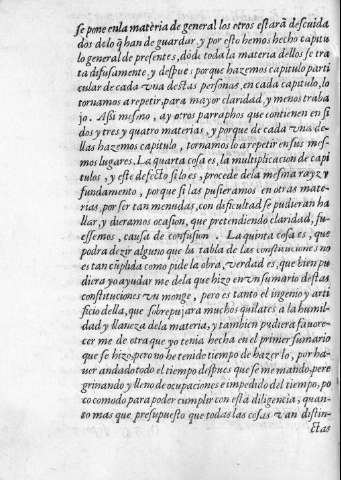 se pone enla matèria de general los otros estarã descuida
dos delo q̃ han de guardar, y por esto hemos hecho capitu
lo general de presentes, dõde toda la materia dellos se tra
ta difusamente, y despues: porque hazemos capitulo parti
cular de cada vna destas personas, en cada capitulo, lo
tornamos a repetir, para mayor claridad, y menos traba
jo. Assi mesmo, ay otros parraphos que contienen en si
dos y tres y quatro materias, y porque de cada vna de-
llas hazemos capitulo, tornamos lo arepetir en sus mes-
mos lugares. La quarta cosa es, la multiplicacion de capi
tulos, y este defecto si lo es, procede dela mesma rayz y
fundamento, porque si las pusieramos en otras mate-
rias, por ser tan menudas, con dificultad se pudieran ha
llar, y dieramos ocasion, que pretendiendo claridad, fu-
essemos, causa de confusion. La quinta cosa es, que
podra dezir alguno que la tabla de las constituciones no
es tan cũplida como pide la obra, verdad es, que bien pu
diera yo ayudar me dela que hizo en vn sumario destas
constituciones vn monge, pero es tanto el ingenio y arti
ficio della, que sobrepujara muchos quilates a la humil-
dad y llaneza dela materia, y tambien pudiera fauore-
cer me de otra que yo tenia hecha en el primer sumario
que se hizo, pero no he tenido tiempo de hazer lo, por ha-
uer andado todo el tiempo despues que se me mando, pere
grinando y lleno de ocupaciones e impedido del tiempo, po
co comodo para poder cumplir con esta diligencia, quan-
to mas que presupuesto que todas las cosas van distin-
ctas